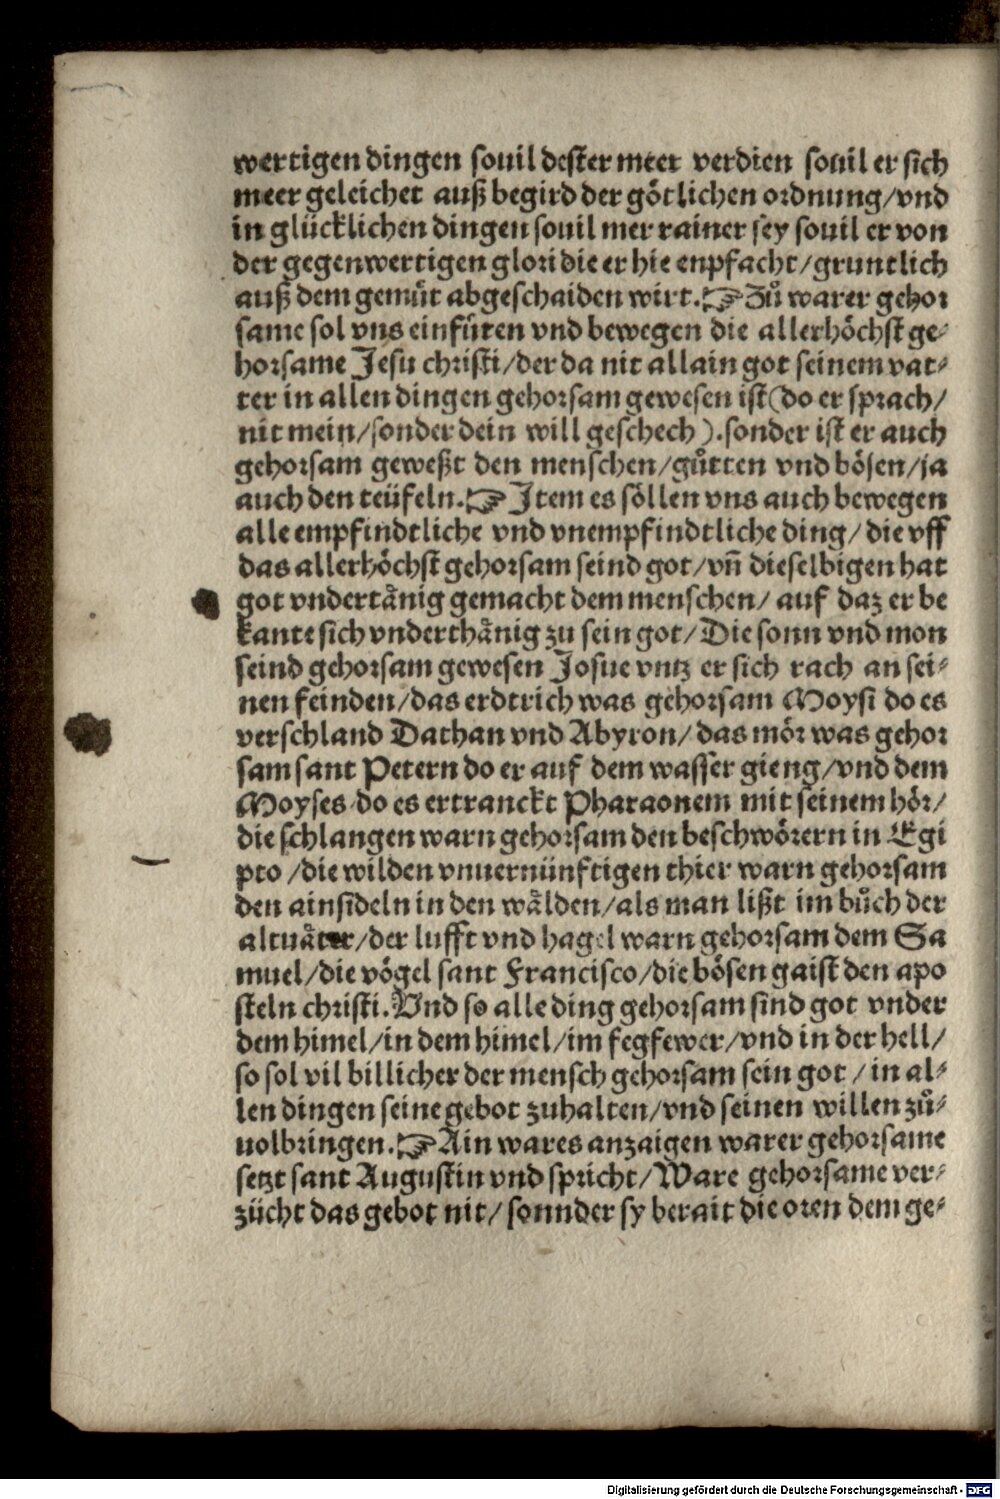 wertigen dingen souil dester meer verdien souil er sich
meer geleichet auß begird der götlichen ordnung/vnd
in glücklichen dingen souil mer rainer sey souil er von
der gegenwertigen glori die er hie enpfacht/gruntlich
auß dem gemüt abgeschaiden wirt.☞Zů warer gehor
same sol vns einfüren vnd bewegen die allerhöchst ge⸗
horsame Jesu christi/der da nit allain got seinem vat⸗
ter in allen dingen gehorsam gewesen ist(do er sprach/
nit mein/sonder dein will geschech).sonder ist er auch
gehorsam geweßt den menschen/gůtten vnd bösen/ja
auch den teüfeln.☞Item es söllen vns auch bewegen
alle empfindtliche vnd vnempfindtliche ding/die vff
das allerhöchst gehorsam seind got/vñ dieselbigen hat
got vndertänig gemacht dem menschen/ auf daz er be
kante sich vnderthänig zu sein got/Die sonn vnd mon
seind gehorsam gewesen Josue vntz er sich rach an sei⸗
nen feinden/das erdtrich was gehorsam Moysi do es
verschland Dathan vnd Abyron/das mör was gehor
sam sant Petern do er auf dem wasser gieng/vnd dem
Moyses do es ertranckt Pharaonem mit seinem hör/
die schlangen warn gehorsam den beschwörern in Egi
pto /die wilden vnuernünftigen thier warn gehorsam
den ainsideln in den wälden/als man lißt im bůch der
altuäter/der lufft vnd hagel warn gehorsam dem Sa
muel/die vögel sant Francisco/die bösen gaist den apo
steln christi.Vnd so alle ding gehorsam sind got vnder
dem himel/in dem himel/im fegfewer/vnd in der hell/
so sol vil billicher der mensch gehorsam sein got /in al⸗
len dingen seine gebot zuhalten/vnd seinen willen zů⸗
uolbringen.☞Ain wares anzaigen warer gehorsame
setzt sant Augustin vnd spricht/Ware gehorsame ver⸗
zücht das gebot nit/ sonnder sy berait die oren dem ge⸗
Digitalisierung gefördert durch die Deutsche Forschungsgemeinschaft - DFG